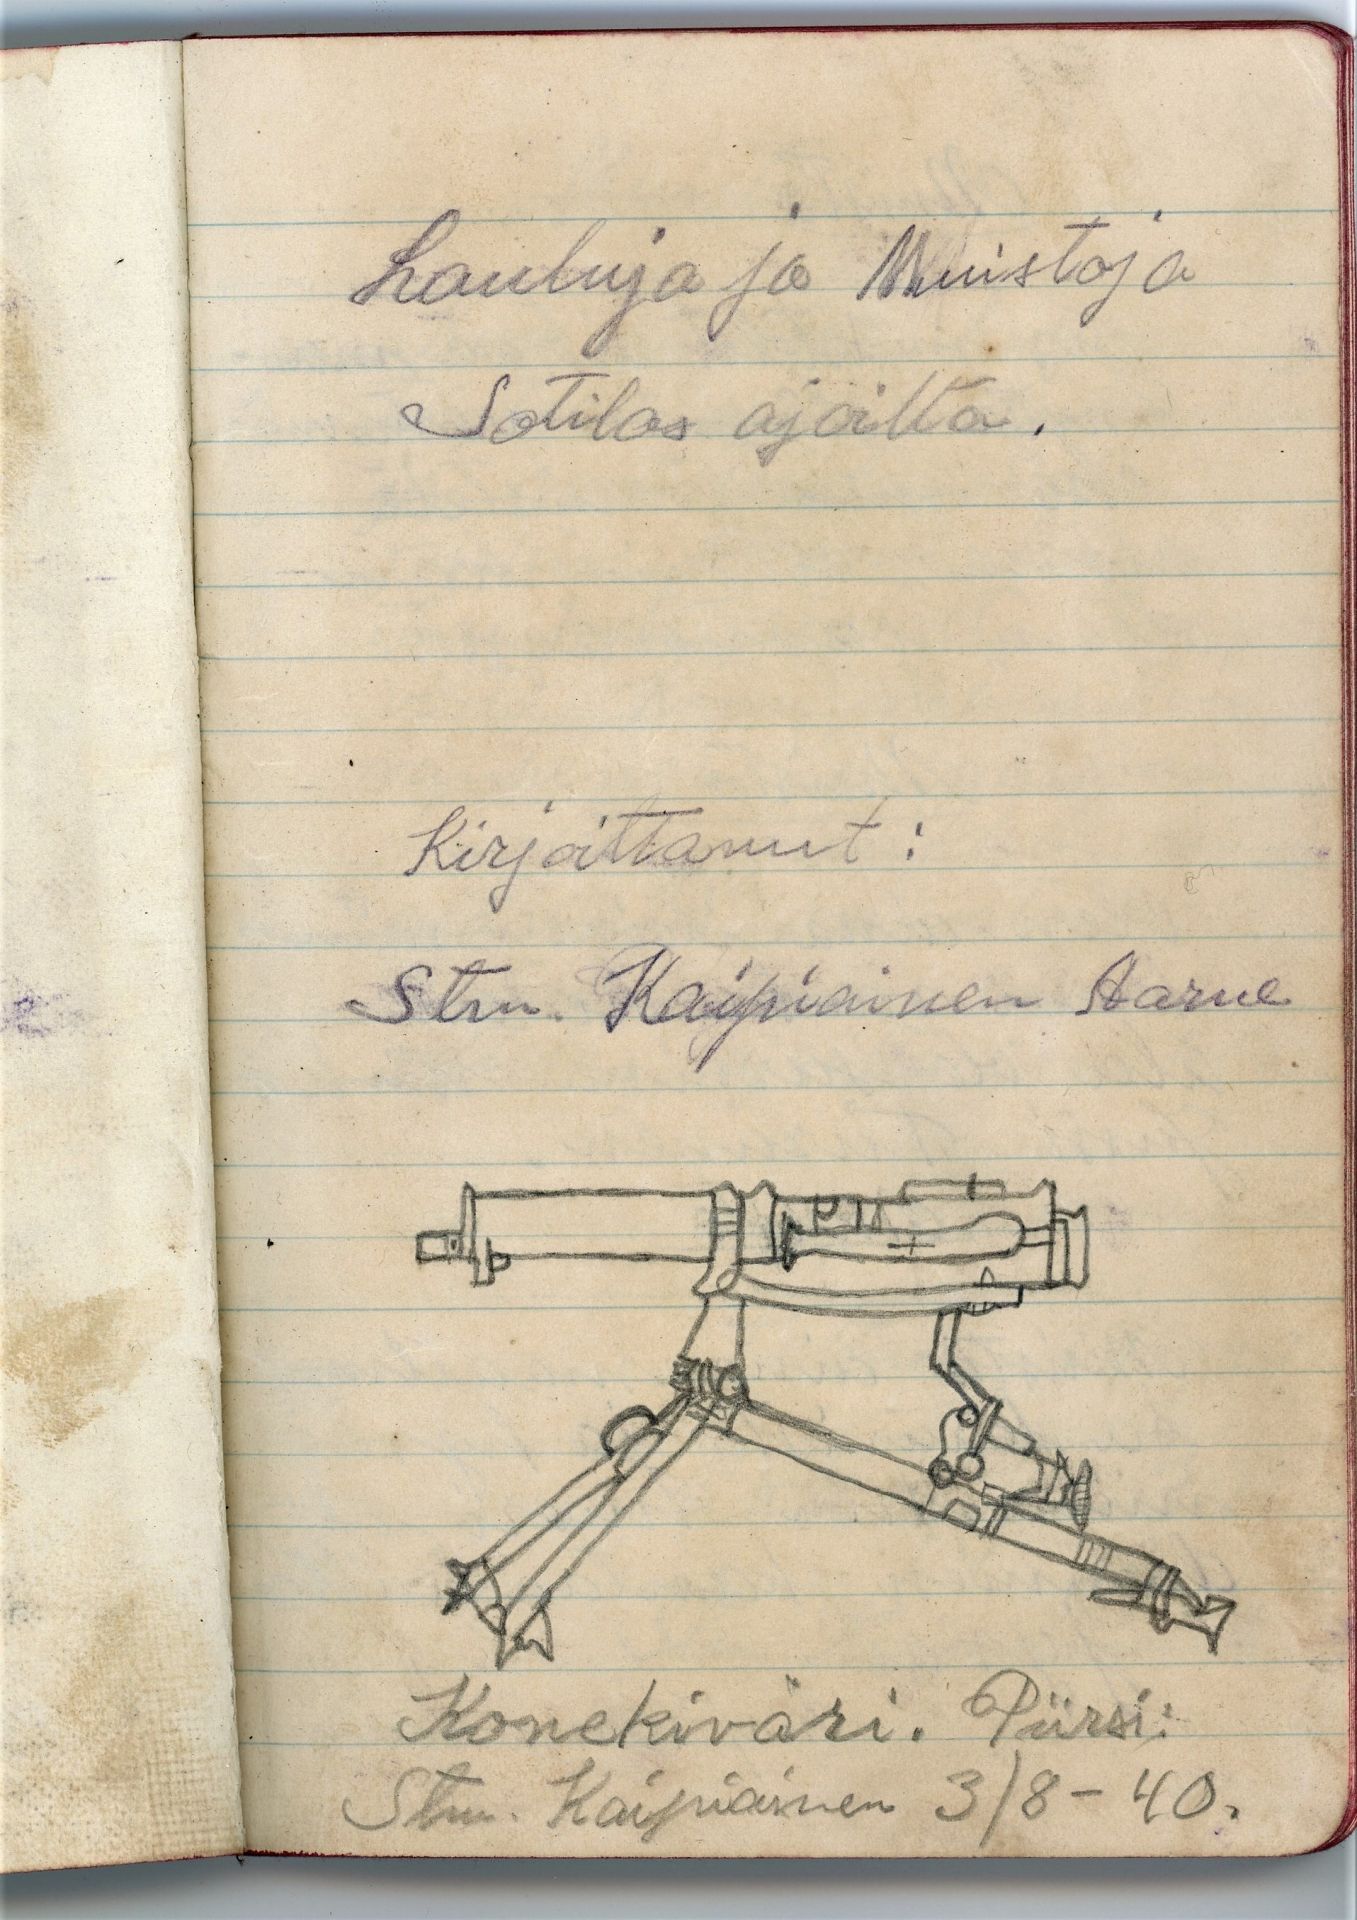 Lauluja ja Muistoja
Sotilas ajoilta.
Kirjoittanut:
Stm. Kaipiainen Aarne
Konekivääri. Piirsi:
Stm. Kaipiainen 3/8-40.